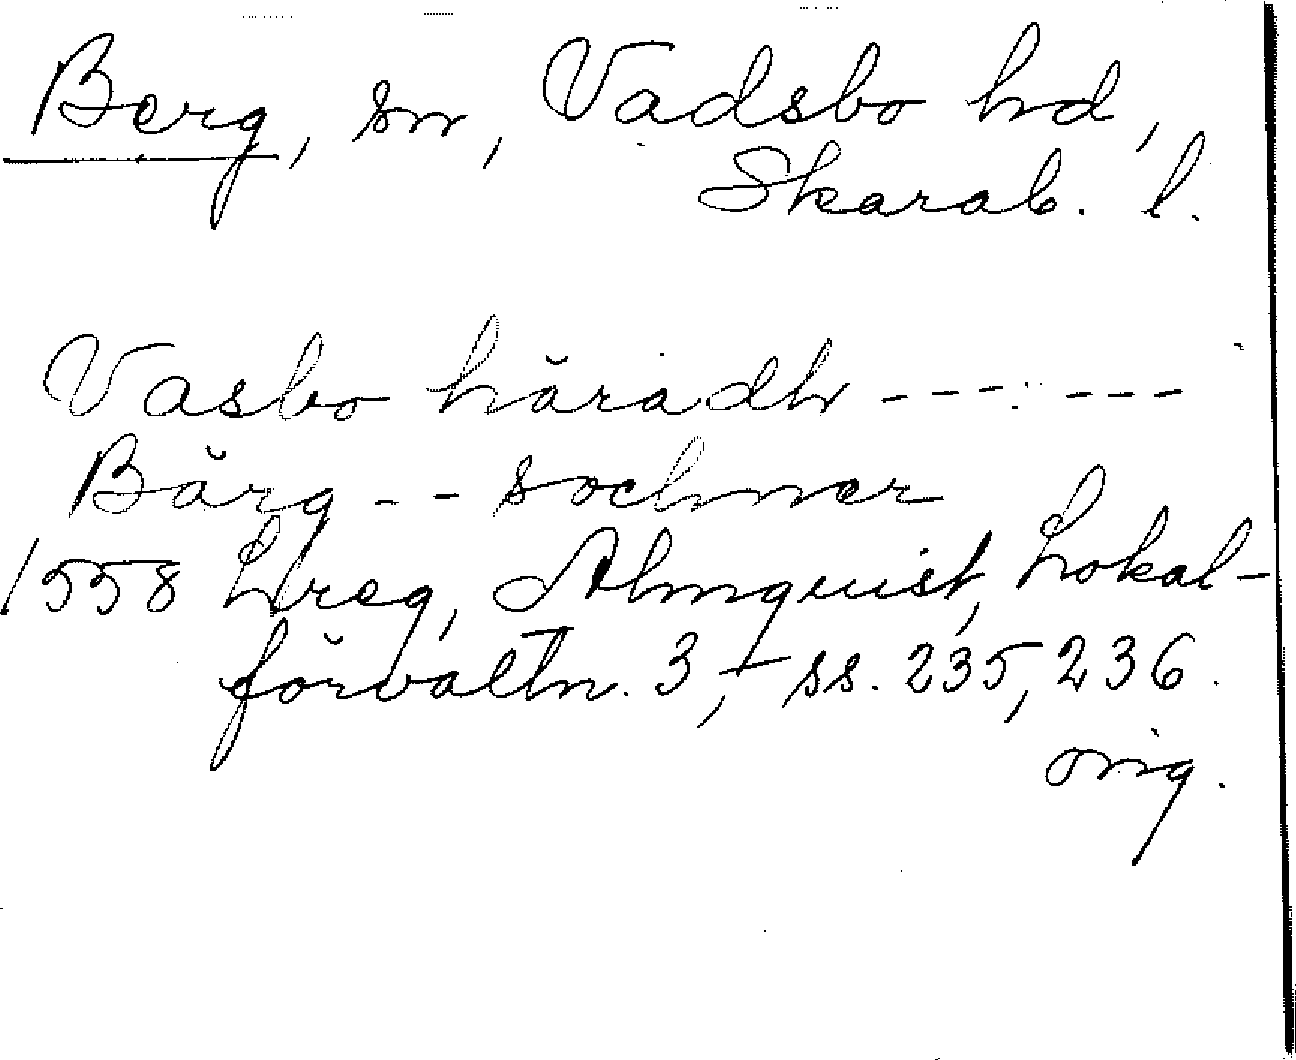 Berg, sn, Vadsbo hd,
Skarab. l.
Vasbo häradh ------
Bärg -- sochner
1558 Lreg, Almquist, Lokal-
förvaltn. 3, ss. 235, 236.
orig.